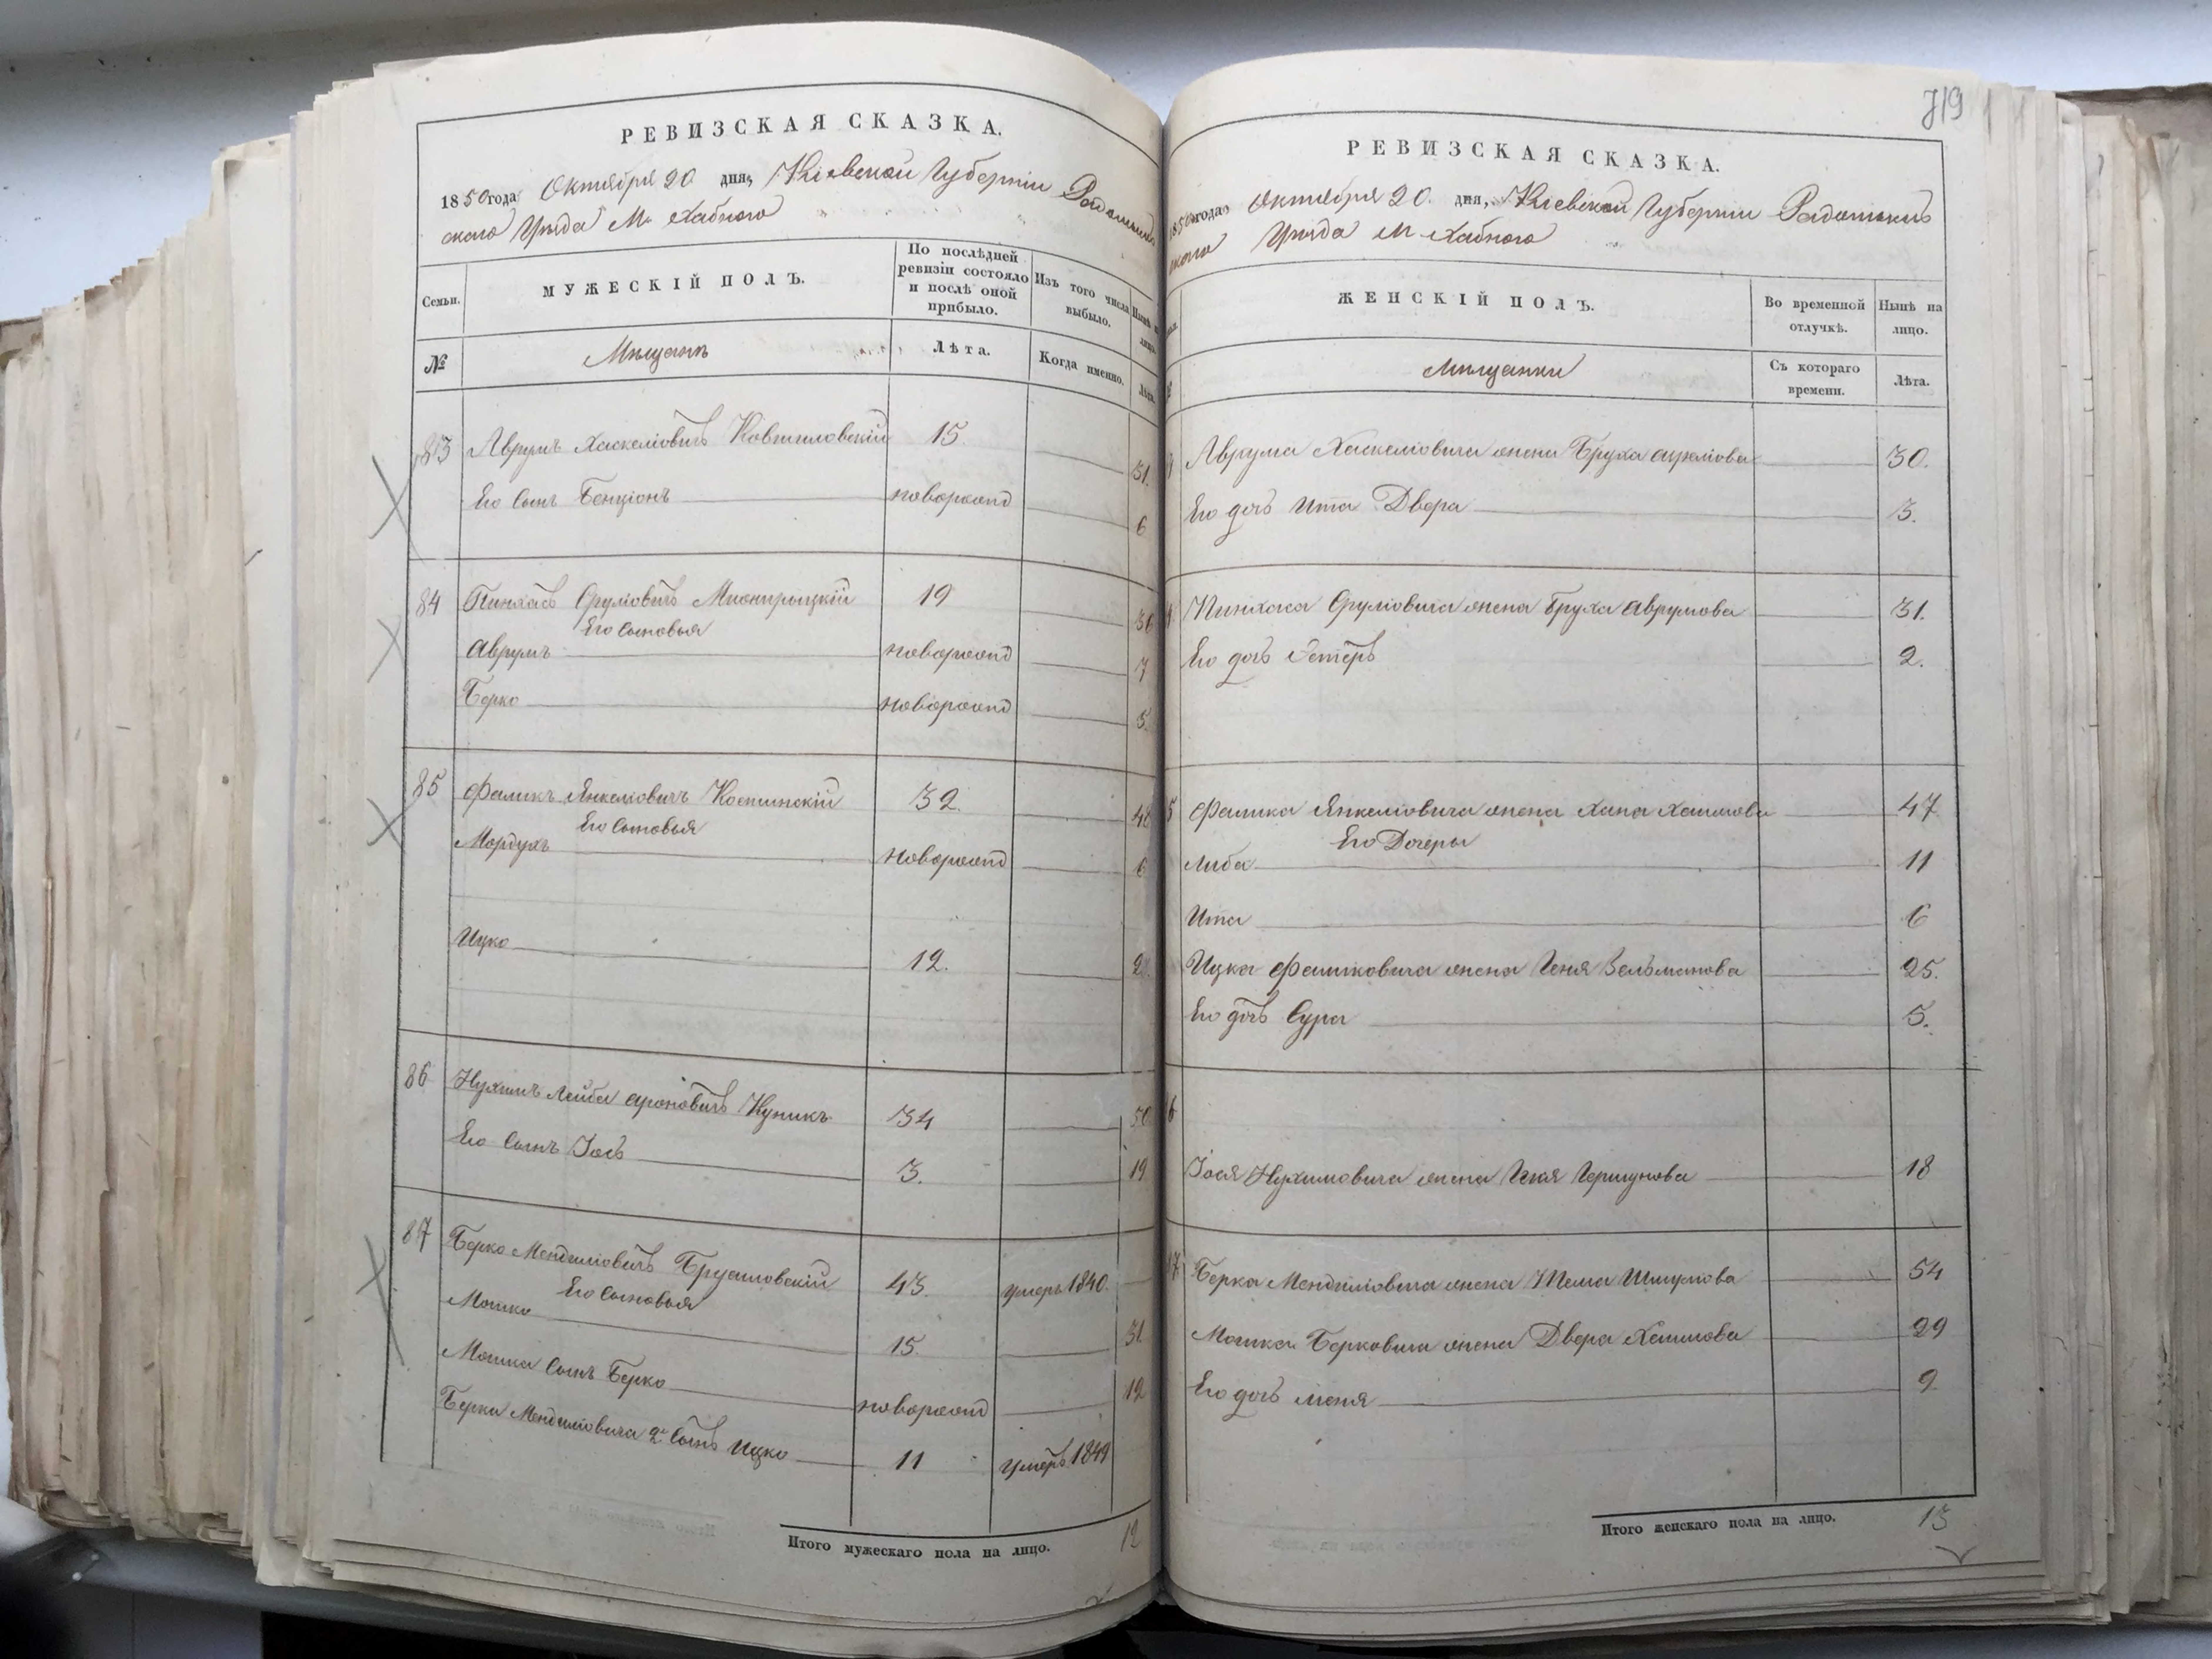 РЕВИЗСКАЯ СКАЗКА.
1850 года Октября 20 дня, Кіевской Губерніи Радомысль
скаго Уѣзда М. Хабного
Семьи.
МУЖЕСКІЙ ПОЛЪ.
По послѣдней ревизіи состояло и послѣ оной прибыло.
Изъ того числа выбыло.
№
Мѣщанъ
Лѣта.
Когда именно.
Лѣта.
83 Аврумъ Хаскеліовичъ 15 31.
Его Сынъ Бенціонъ новорожд 6
84 Пинхасъ Сруліовичъ 19 36
Его Сыновья
Аврумъ новорожд 7
Берко новорожд 5.
85 Фаликъ Янкеліовичъ 32. 48
Его Сыновья
Мордухъ новорожд 6
Ицко 12. 28.
86 Нухимъ Лейба Ароновичъ Куникъ 34 50
Его Сынъ Іось 3. 19
87 Берко Менделіовичъ Брусиловскій 43. умеръ 1840.
Его Сыновья
Мошко 15. 31.
Мошка Сынъ Берко новорожд 12
Берка Менделіовича 2й Сынъ Ицко 11 умеръ 1849
Итого мужескаго пола на лицо. 12
719
РЕВИЗСКАЯ СКАЗКА.
1850 года Октября 20. дня, Кіевской Губерніи Радомысль
скаго Уѣзда М. Хабного
ЖЕНСКІЙ ПОЛЪ.
Во временной отлучкѣ.
Нынѣ на лицо.
Мѣщанки
Съ котораго времени.
Лѣта.
Аврума Хаскеліовича жена Бруха 30.
Его дочь Ита Двера 3.
Пинхаса Сруліовича жена Бруха Аврумова 31.
Его дочь Естеръ 2.
Фалика Янкеліовича жена Хана Хаимова 47
Его Дочеры
Либа 11
Ита 6
Ицка Фаликовича жена Геня Зельманова 25.
Его дочь Сура 5.
Іося Нухимовича жена Гершунова 18
Берка Менделіовича жена Шмулова 54
Мошка Берковича жена Двера Хаимова 29
Его дочь 9
Итого женскаго пола на лицо. 13